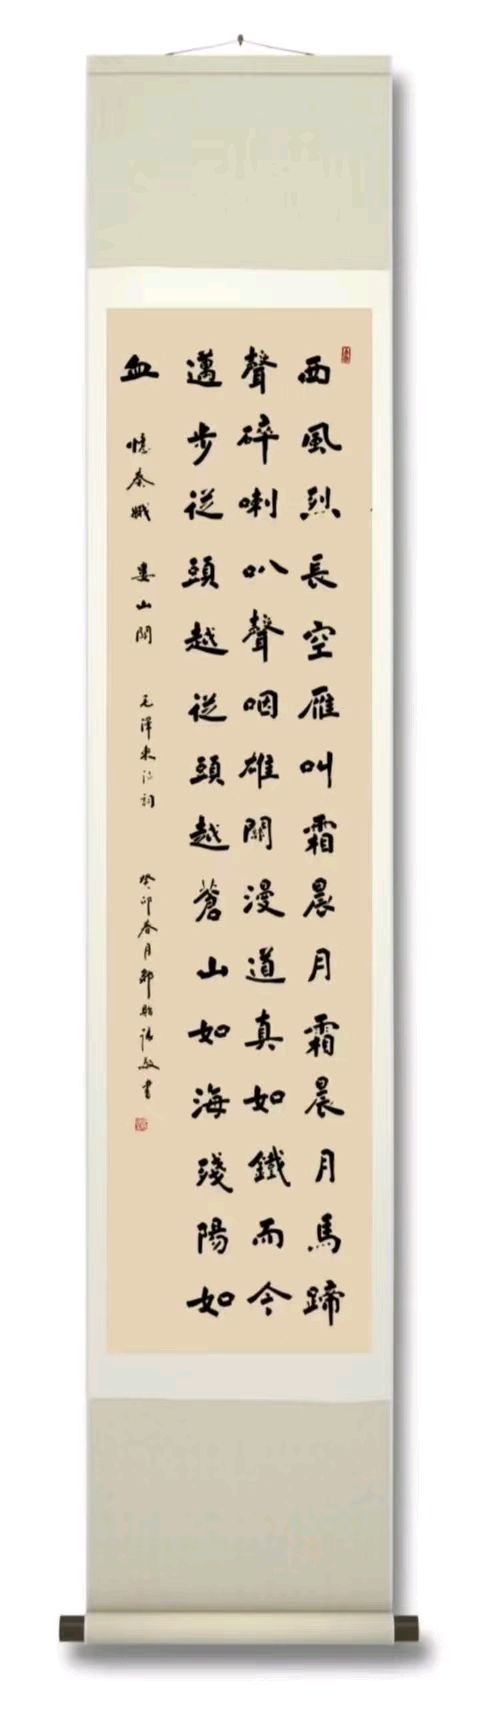 西風烈長空雁叫霜晨月霜晨月馬蹄
聲碎喇叭聲咽雄關漫道真如鐵而今
邁步從頭越從頭越蒼山如海殘陽如
血
憶秦娥 婁山關 毛澤東 詞 癸卯春月 敬書